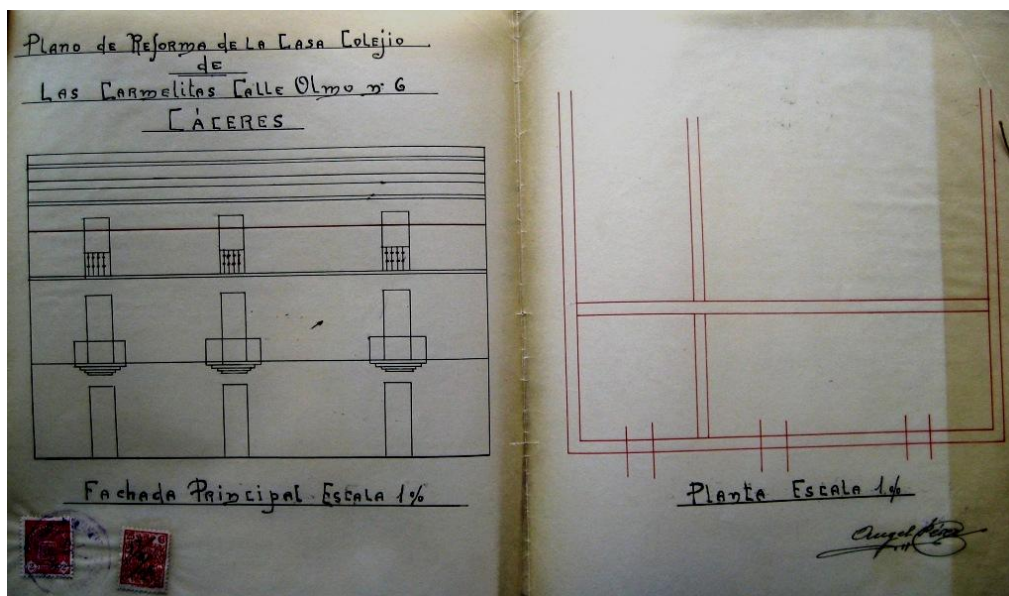 Plano de Reforma de La Casa Colejio
de
Las Carmelitas Calle Olmo nº 6
CÁCERES
Fachada Principal Escala 1%
Planta Escala 1%
Angel Pérez